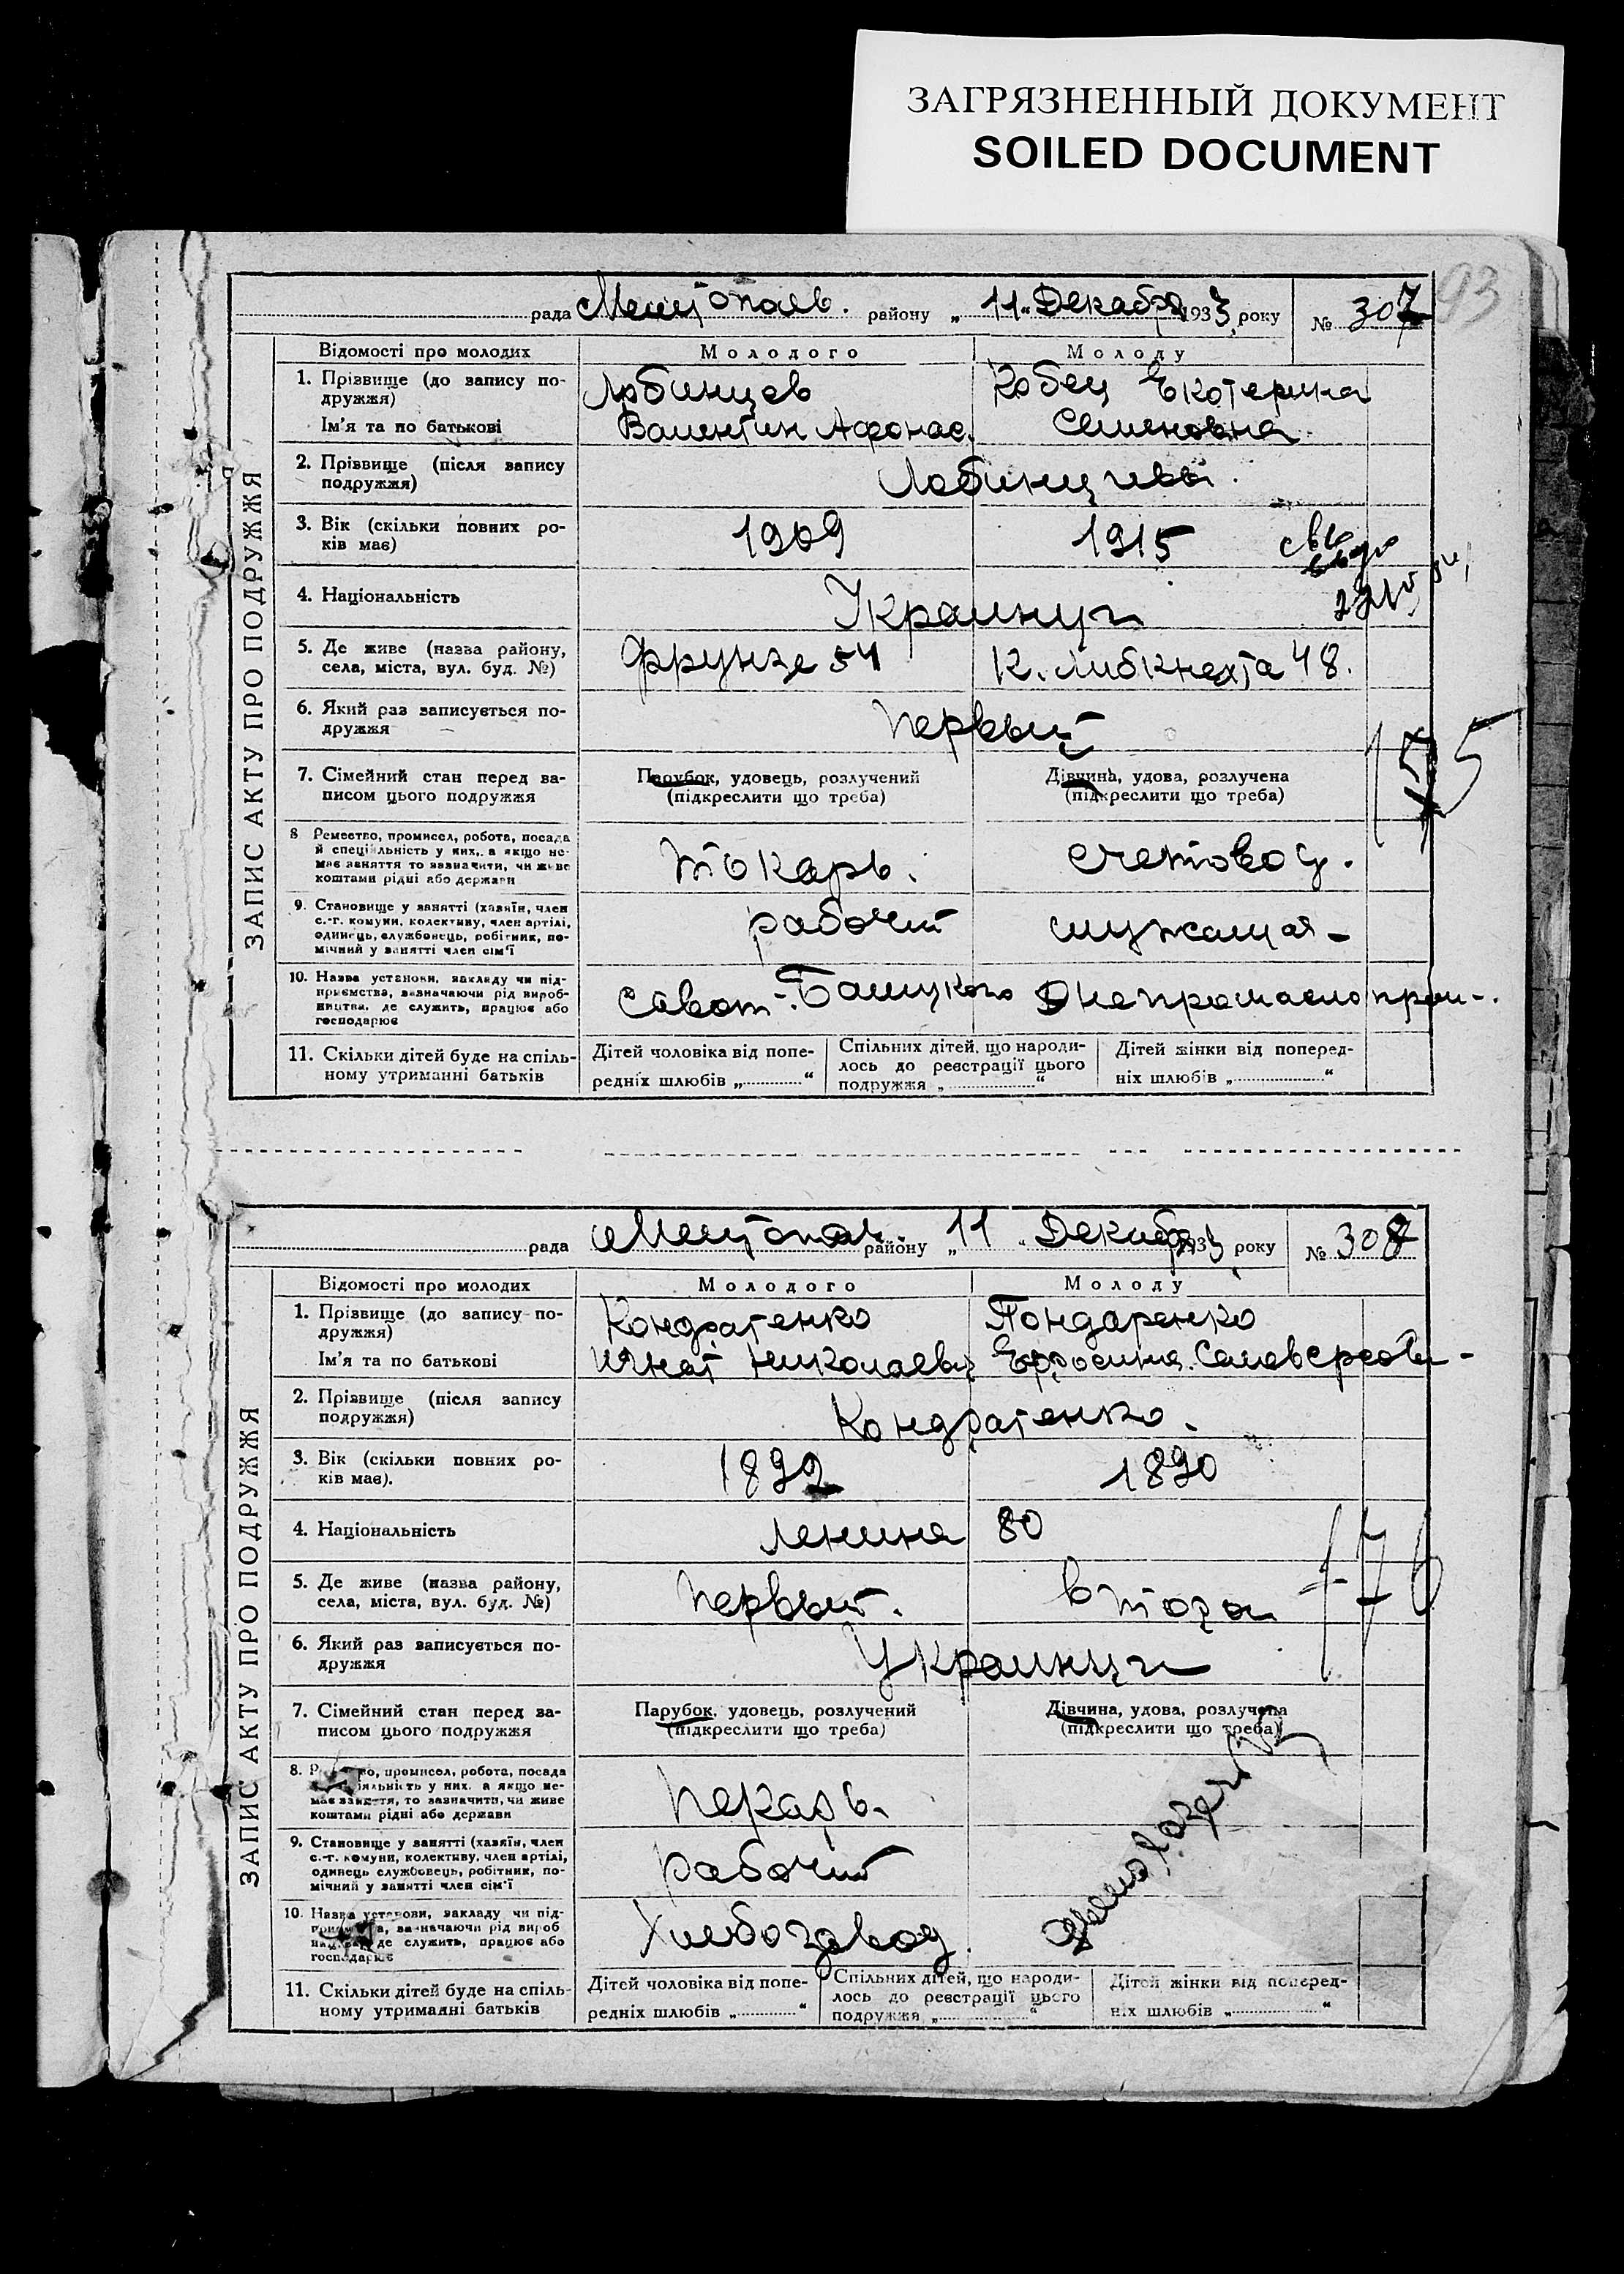 ЗАГРЯЗНЕННЫЙ ДОКУМЕНТ
SOILED DOCUMENT
93
рада Мелітопаев. району „11“ Декабря 1933 року № 307
ЗАПИС АКТУ ПРО ПОДРУЖЖЯ
Відомості про молодих Молодого Молоду
1. Прізвище (до запису по-
дружжя)
Лобинцев Кобец Екотерина
Ім'я та по батькові Валентин Афонас. Семеновна
2. Прізвище (після запису
подружжя)
Лобинцевы.
3. Вік (скільки повних ро-
ків має)
1909 1915
4. Національність Украинцы
5. Де живе (назва району,
села, міста, вул. буд. №)
Фрунзе 54 К. Либкнехта 48.
6. Який раз записується по-
дружжя
Первый
175
7. Сімейний стан перед за-
писом цього подружжя
Парубок, удовець, розлучений
(підкреслити що треба)
Дівчина, удова, розлучена
(підкреслити що треба)
8 Ремество, промисел, робота, посада
й спеціальність у них, а якщо не-
має заняття то зазначити, чи живе
коштами рідні або держави
токарь. счетовод.
9. Становище у занятті (хазяїн, член
с.-г. комуни, колективу, член артілі,
одинець, службовець, робітник, по-
мічний у занятті член сім'ї
рабочий служащая-
10. Назва установи, закладу чи під-
приємства, зазначаючи рід вироб-
ництва, де служить, працює або
господарює
Днепромаслопром-.
11. Скільки дітей буде на спіль-
ному утриманні батьків
Дітей чоловіка від попе-
редніх шлюбів „ “
Спільних дітей, що народи-
лось до реєстрації цього
подружжя „ “
Дітей жінки від поперед-
ніх шлюбів „ “
рада Мелітопол. району „11“ Декабря 1933 року № 308
ЗАПИС АКТУ ПРО ПОДРУЖЖЯ
Відомості про молодих Молодого Молоду
1. Прізвище (до запису по-
дружжя)
Кондратенко Бондаренко
Ім'я та по батькові Игнат Николаевич Ефросиния
2. Прізвище (після запису
подружжя)
Кондратенко.
3. Вік (скільки повних ро-
ків має).
1892 1890
4. Національність Ленина 80
5. Де живе (назва району,
села, міста, вул. буд. №)
Первый. Втора
176
6. Який раз записується по-
дружжя
Украинцы
7. Сімейний стан перед за-
писом цього подружжя
Парубок, удовець, розлучений
(підкреслити що треба)
Дівчина, удова, розлучена
(підкреслити що треба)
8. Ремество, промисел, робота, посада
й спеціяльність у них, а якщо не-
має заняття, то зазначити, чи живе
коштами рідні або держави
пекарь.
9. Становище у занятті (хазяїн, член
с.-г. комуни, колективу, член артілі,
одинець службовець, робітник, по-
мічний у занятті член сім'ї
рабочий
10. Назва установи, закладу чи під-
приємства, зазначаючи рід вироб
ництва, де служить, працює або
господарює
Хлебозавод.
11. Скільки дітей буде на спіль-
ному утриманні батьків
Дітей чоловіка від попе-
редніх шлюбів „ “
Спільних дітей, що народи-
лось до реєстрації цього
подружжя „ “
Дітей жінки від поперед-
ніх шлюбів „ “